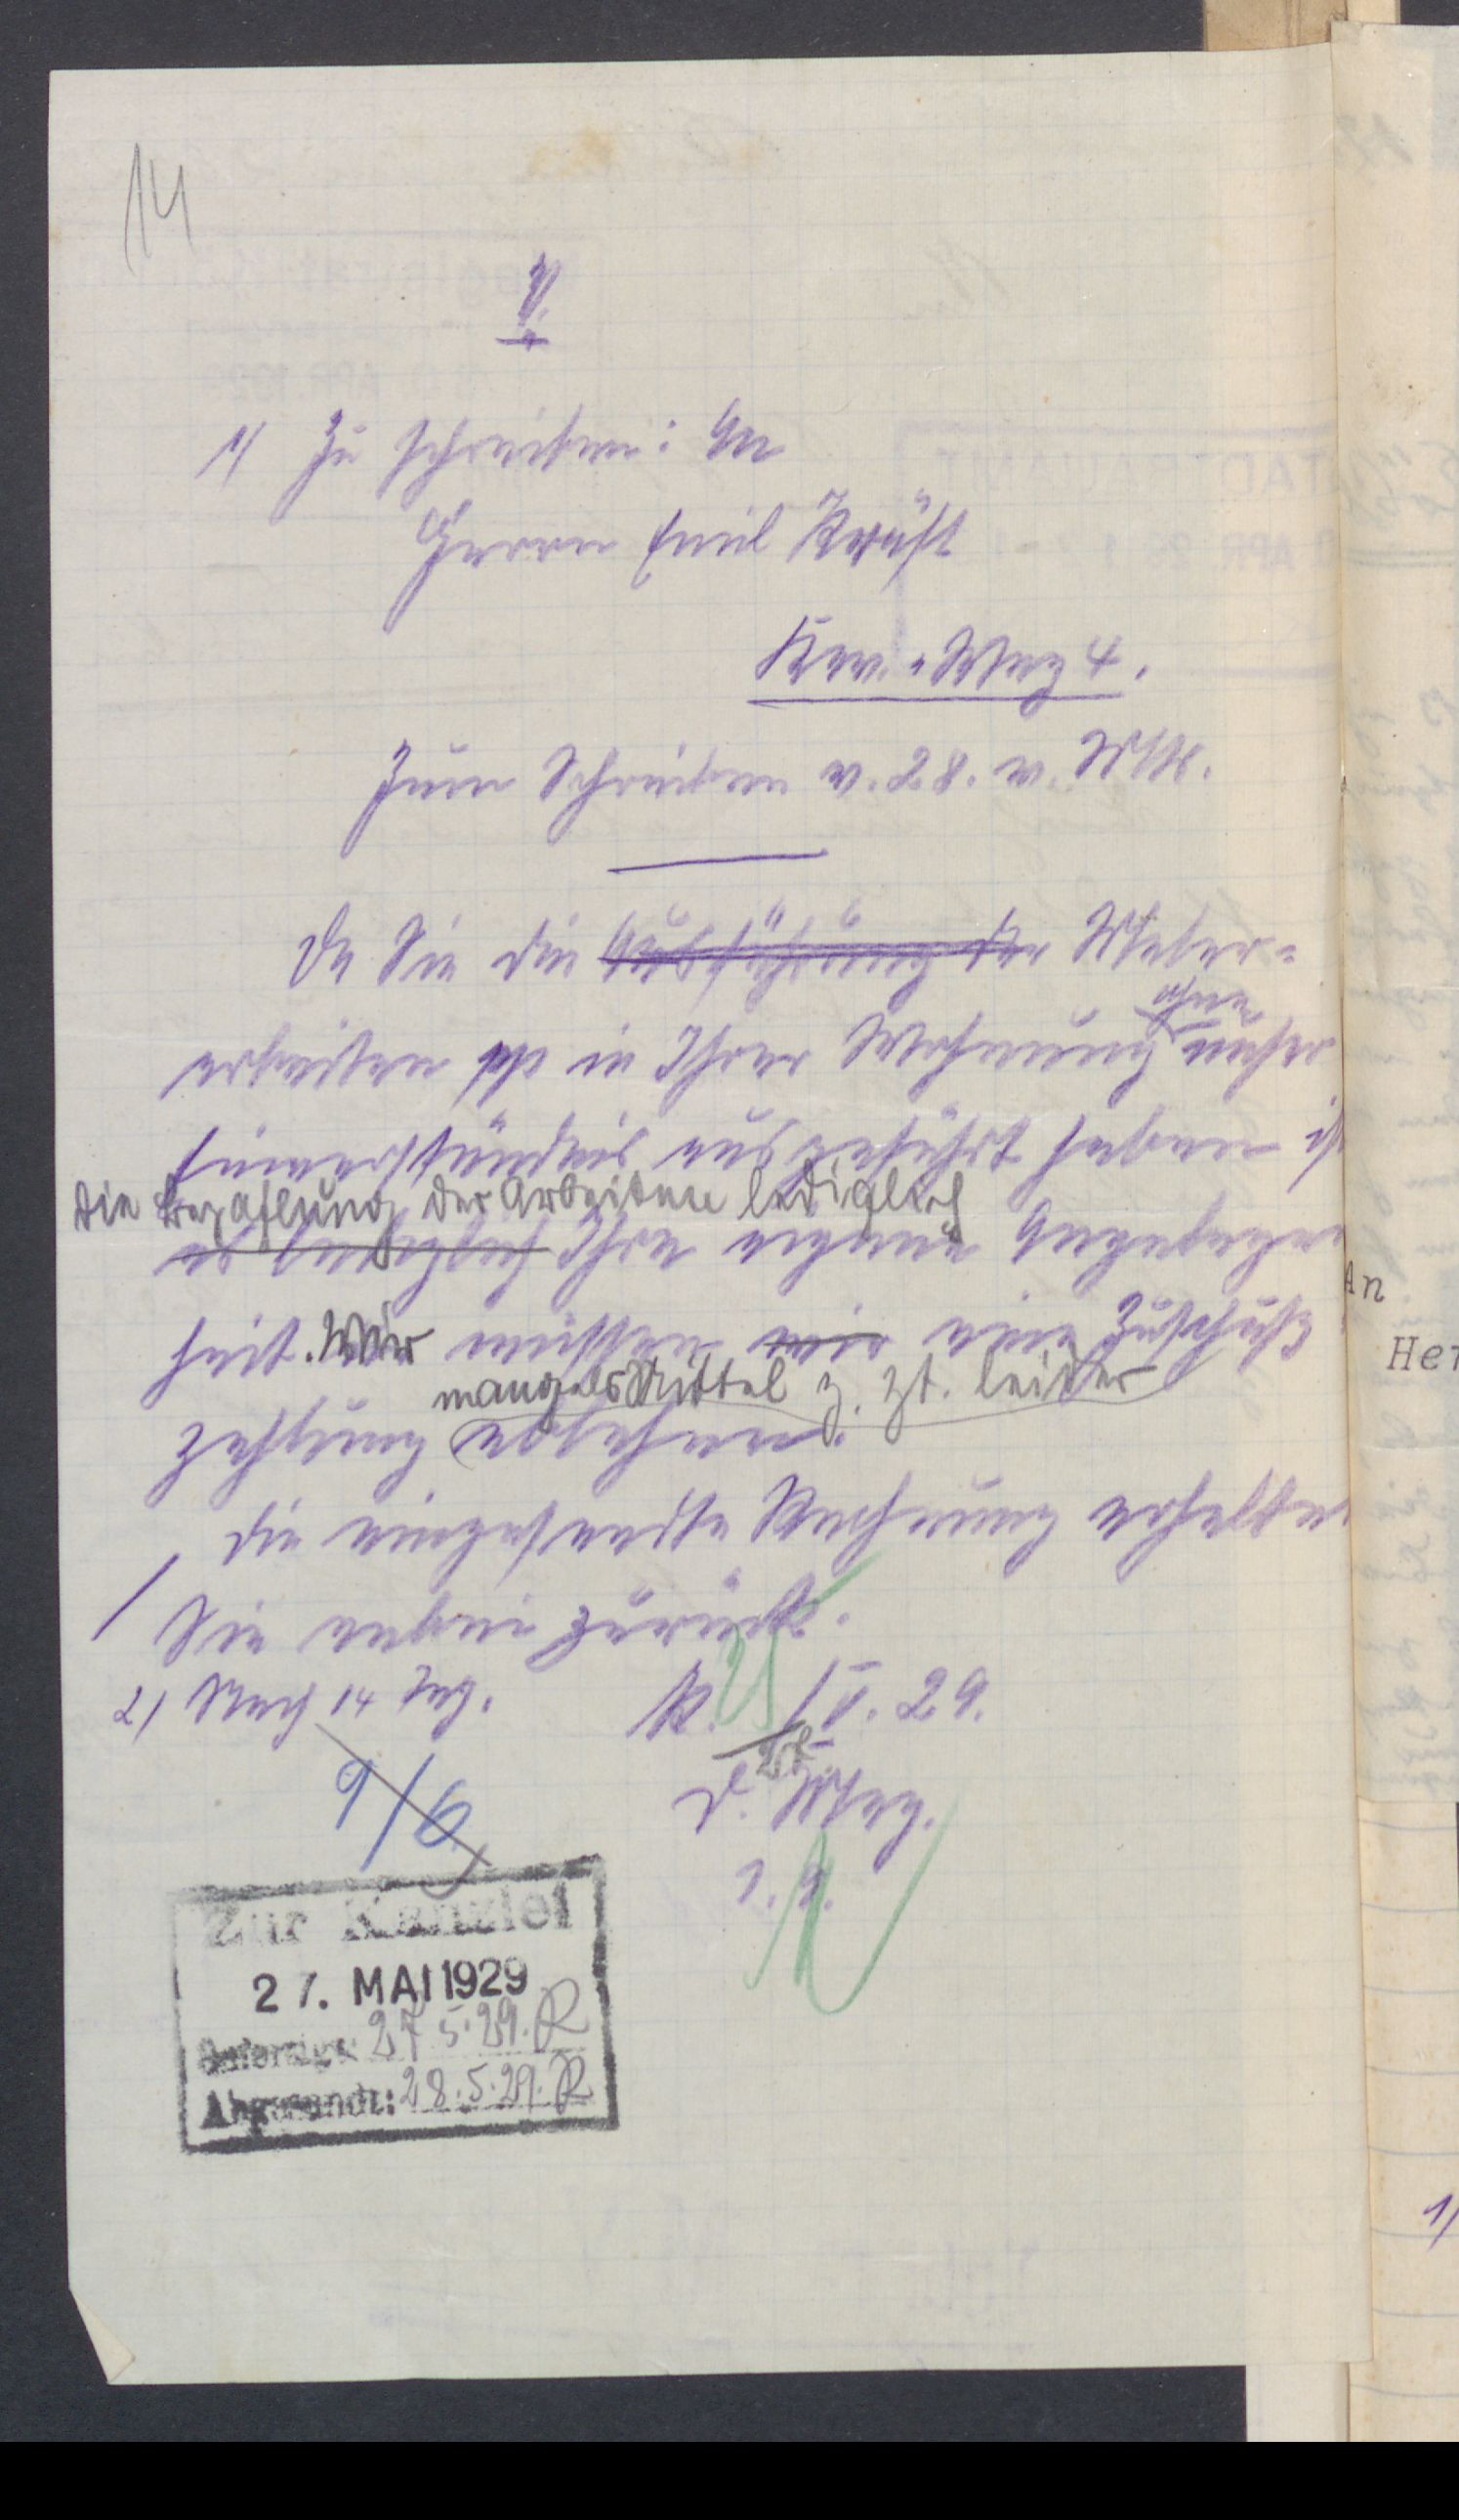 14
V
1) Zu schreiben: An
Herrn Emil Kräft
Zum Schreiben v. 28. v. Mts.
Da Sie die Ausführung der Maler-
ohne
arbeiten pp in Ihrer Wohnung unser
Einverständnis ausgeführt haben ist
die Bezahlung der Arbeiten lediglich
es lediglich Ihre eigene Angelegen
heit. Wir müssen wir eine Zuschuß
mangels Mittel z. Zt. leider
zahlung ablehnen.
Die eingesandte Rechnung erhalten
Sie anbei zurück.
2) Nach 14 Tag.
K. V. 29.
27.
D. Mag.
I. A.
9/6
Zur Kanzlei
27. MAI 1929
Gefertigt: 27.5.29. R
Abgesandt: 28.5.29. R
An
Her
1/